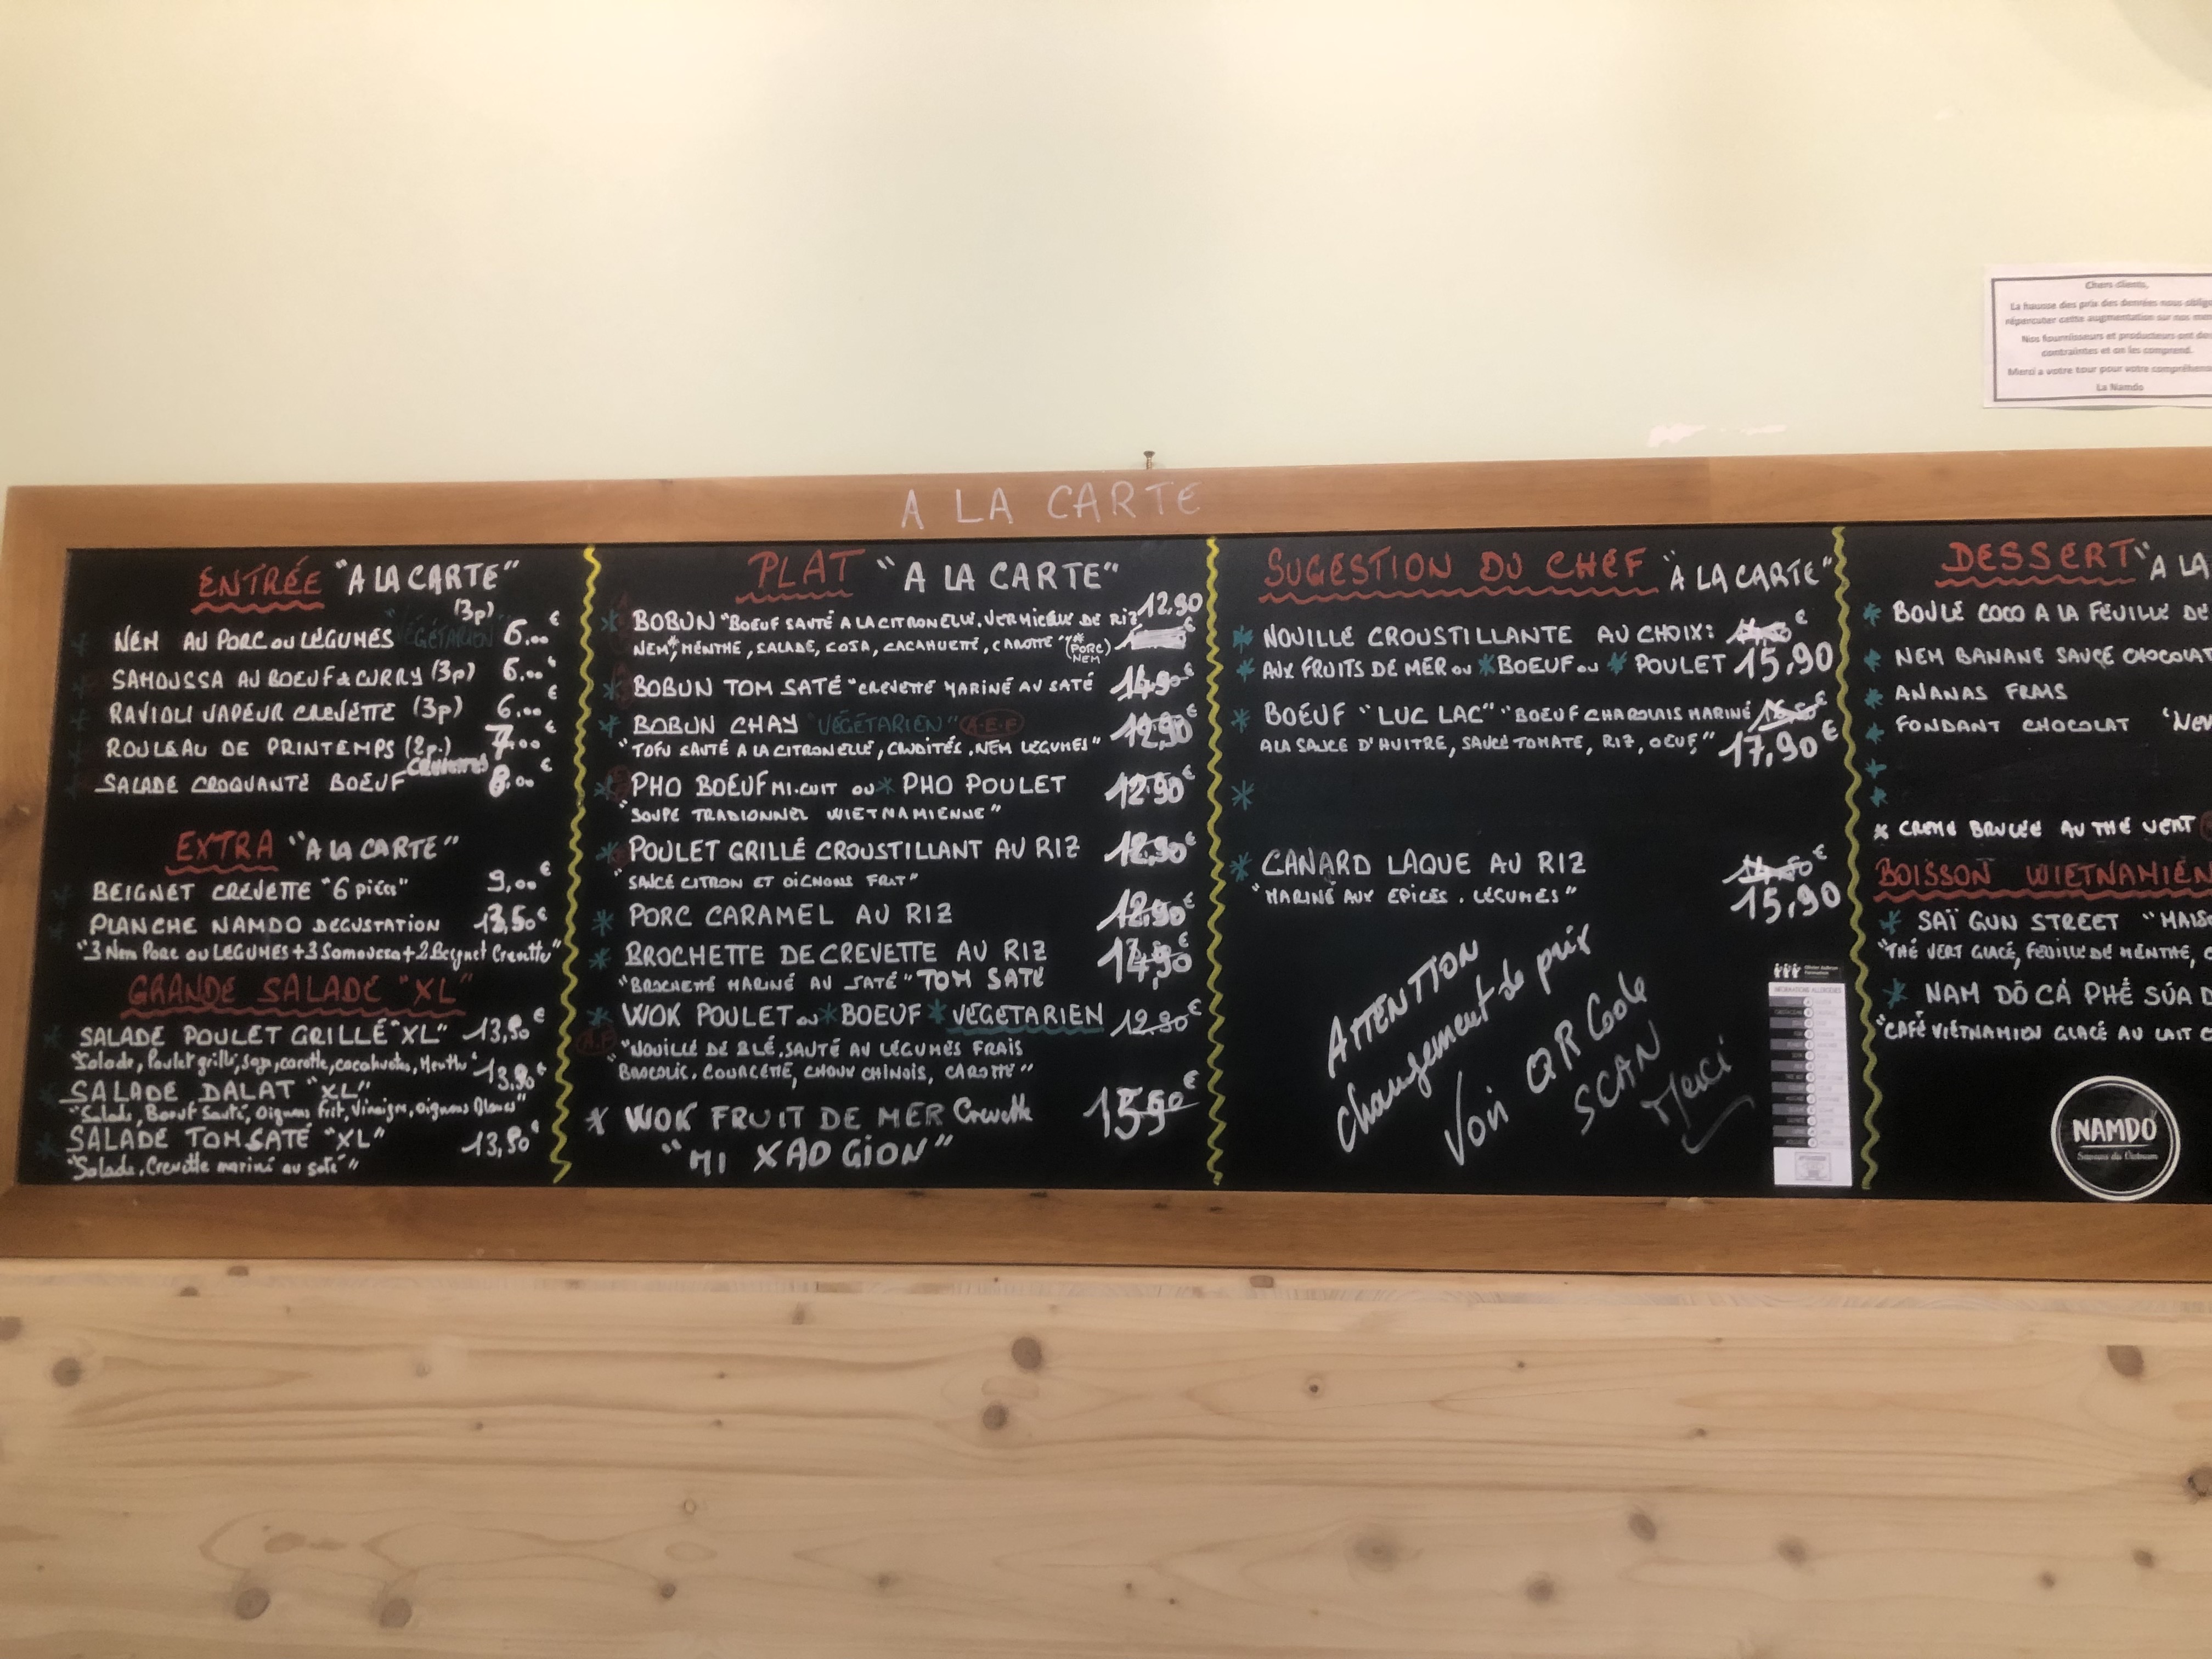 A LA CARTE
ENTRÉE "A LA CARTE"
(3p)
NEM AU PORC OU LÉGUMES "VÉGÉTARIEN" 6.00 €
SAMOUSSA AU BOEUF & CURRY (3p) 6.00 €
RAVIOLI VAPEUR CREVETTE (3p) 6.00 €
ROULEAU DE PRINTEMPS (2p.) 7.00 €
SALADE CROQUANTE BOEUF 8.00 €
EXTRA "A LA CARTE"
BEIGNET CREVETTE "6 pièces" 9,00 €
PLANCHE NAMDO DEGUSTATION 13,50 €
"3 Nem Porc ou LEGUMES + 3 Samoussa + 2 Beignet Crevette"
GRANDE SALADE "XL"
SALADE POULET GRILLÉ "XL" 13,90 €
"Salade, Poulet grillé, soja, carotte, cacahuetes, Menthe"
SALADE DALAT "XL" 13,90 €
"Salade, Boeuf Sauté, Oignons frit, Vinaigre, Oignons Blancs"
SALADE TOM SATÉ "XL" 13,90 €
"Salade, Crevette mariné au saté"
PLAT "A LA CARTE"
* BOBUN "BOEUF SAUTÉ A LA CITRONELLE, VERMICELLE DE RIZ 12.90
NEM*, MENTHE, SALADE, COJA, CACAHUETTE, CAROTTE" (* PORC NEM) €
* BOBUN TOM SATÉ "CREVETTE MARINÉ AU SATÉ 14.90 €
* BOBUN CHAY "VÉGÉTARIEN" (A-E-F) 12.90 €
"TOFU SAUTÉ A LA CITRONELLE, CRUDITÉS, NEM LEGUMES"
* PHO BOEUF MI-CUIT OU * PHO POULET 12.90 €
"SOUPE TRADIONNEL WIETNAMIENNE"
* POULET GRILLÉ CROUSTILLANT AU RIZ 12.90 €
"SAUCE CITRON ET OIGNONS FRIT"
* PORC CARAMEL AU RIZ 12.90 €
* BROCHETTE DE CREVETTE AU RIZ 14,90 €
"BROCHETTE MARINÉ AU SATÉ" TOM SATÉ
* WOK POULET OU * BOEUF * VEGETARIEN 12.90 €
(A.F) "NOUILLE DE BLÉ, SAUTÉ AU LÉGUMES FRAIS
BROCOLIS, COURGETTE, CHOUX CHINOIS, CAROTTE"
* WOK FRUIT DE MER Crevette 15,90 €
"MI XAO GION"
SUGESTION DU CHEF "A LA CARTE"
* NOUILLE CROUSTILLANTE AU CHOIX: €
* AUX FRUITS DE MER OU * BOEUF OU * POULET 15,90
* BOEUF "LUC LAC" "BOEUF CHAROLAIS MARINÉ €
A LA SAUCE D'HUITRE, SAUCE TOMATE, RIZ, OEUF" 17,90 €
*
* CANARD LAQUE AU RIZ 14.50 €
"MARINÉ AUX EPICES. LÉGUMES" 15,90
ATTENTION
changement de prix
Voir QR Code
SCAN
Merci
DESSERT "A LA
* BOULE COCO A LA FEUILLE DE
* NEM BANANE SAUCE CHOCOLAT
* ANANAS FRAIS
* FONDANT CHOCOLAT
*
*
* CREME BRULEE AU THÉ VERT
BOISSON WIETNAMIEN
* SAÏ GUN STREET "MAIS
"THÉ VERT GLACÉ, FEUILLE DE MENTHE,
* NAM DÔ CÀ PHÊ SÚA D
"CAFÉ VIÉTNAMIEN GLACÉ AU LAIT C
NAMDO
Saveurs du Vietnam
Chers clients,
La hausse des prix des denrées nous oblige
répercuter cette augmentation sur nos men
Nos fournisseurs et producteurs ont des
contraintes et on les comprend.
Merci a votre tour pour votre compréhens
La Namdo